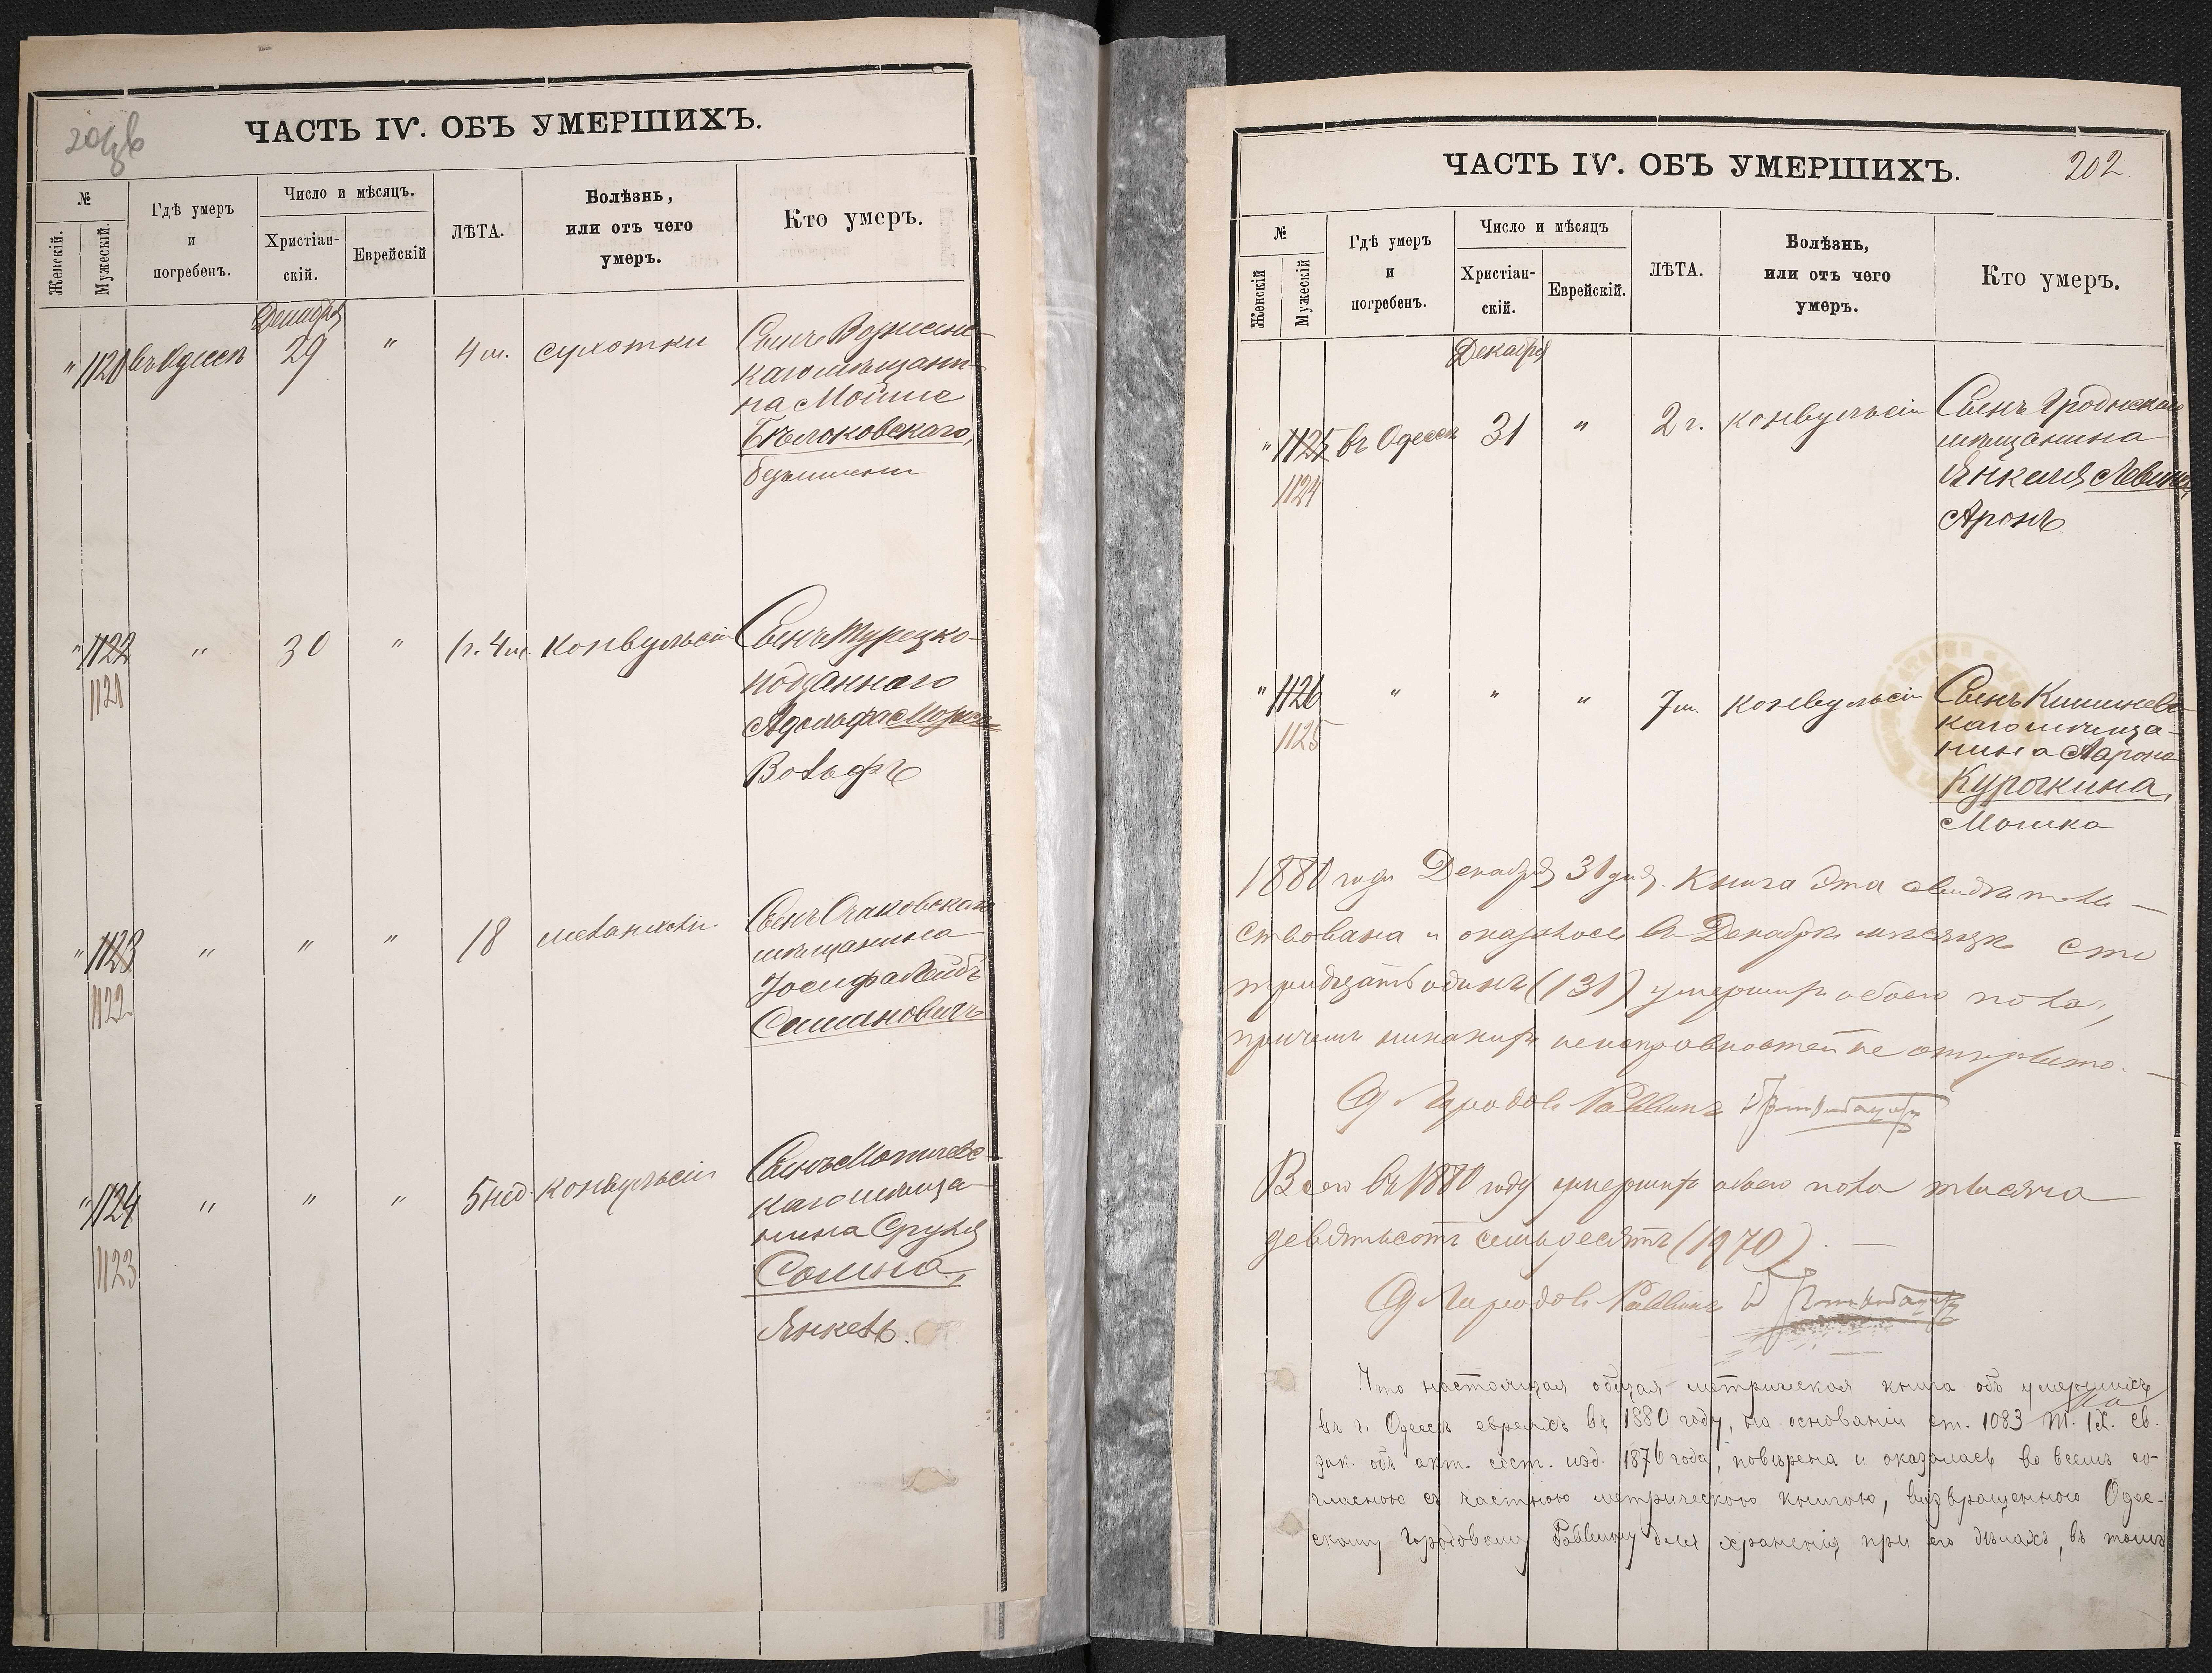 ЧАСТЬ IV. ОБЪ УМЕРШИХЪ.
№
Женскій.
Мужескій.
Гдѣ умеръ
и
погребенъ.
Число и мѣсяцъ.
Христіан-
скій.
Еврейскій
ЛѢТА.
Болѣзнь,
или отъ чего
умеръ.
Кто умеръ.
Декабря
" 1121 въ Одессѣ 29 " 4 м. сухотки Сынъ Вознесенс-
каго мѣщани-
на Мойше
Бѣлоковскаго,
безъимени
" 1122 " 30 " 1 г. 4 м. конвульсіи Сынъ Турецко-
1121
подданнаго
Адольфа
Вольфъ
" 1123 " " " 18 Сынъ Очаковскаго
1122
мѣщанина
Іосифа Лейбъ
" 1124 " " " 5 нед. конвульсіи Сынъ Могилевс-
1123
каго мѣща-
нина Сруля
Сомина,
Янкель.
ЧАСТЬ IV. ОБЪ УМЕРШИХЪ. 202.
№
Женскій
Мужескій
Гдѣ умеръ
и
погребенъ.
Число и мѣсяцъ
Христіан-
скій.
Еврейскій.
ЛѢТА.
Болѣзнь,
или отъ чего
умеръ.
Кто умеръ.
Декабря
" 1125 въ Одессѣ 31 " 2 г. конвульсіи Сынъ Гродненскаго
1124
мѣщанина
Янкеля Левина,
Аронъ
" 1126 " " " 7 м. конвульсіи Сынъ Кишиневс-
1125
каго мѣща-
нина Аарона
Курочкина,
Мошко
1880 года Декабря 31 дня. Книга эта свидѣтель-
ствована и оказалось въ Декабрѣ мѣсяцѣ сто
тридцать одинъ (131) умершихъ обоего пола,
причемъ никакихъ неисправностей не открыто. —
Городов. Раввинъ
Всего въ 1880 году умершихъ обоего пола тысяча
девятьсотъ семьдесятъ (1970). —
Городов. Раввинъ
Что настоящая общая метрическая книга объ умершихъ
въ г. Одессѣ евреяхъ въ 1880 году, на основаніи ст. 1083 т. IX. св.
зак. объ акт. сост. изд. 1876 года, повѣрена и оказалась во всемъ со-
гласною съ частною метрическою книгою, возвращенною Одес-
скому Городовому Раввину для храненія при его дѣлахъ, въ томъ